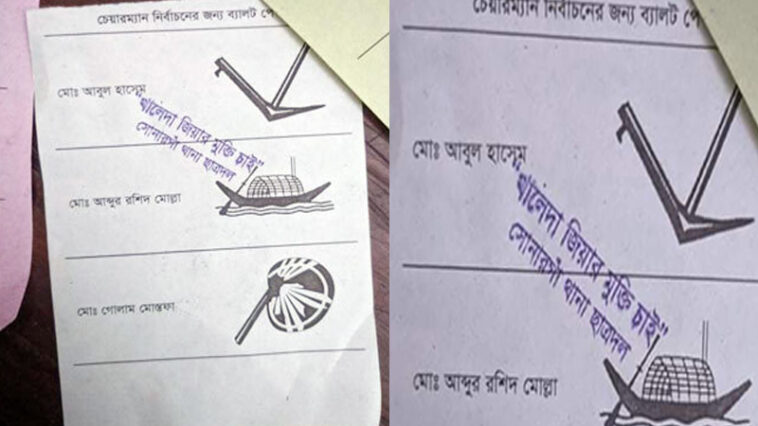 চেয়ারম্যান নির্বাচনের জন্য ব্যালট পে
মোঃ আবুল হাসেম
"খালেদা জিয়ার মুক্তি চাই"
সোনারগাঁ থানা ছাত্রদল
মোঃ আব্দুর রশিদ মোল্লা
মোঃ গোলাম মোস্তফা
চেয়ারম্যান নির্বাচনের জন্য ব্যালট পে
মোঃ আবুল হাসেম
"খালেদা জিয়ার মুক্তি চাই"
সোনারগাঁ থানা ছাত্রদল
মোঃ আব্দুর রশিদ মোল্লা